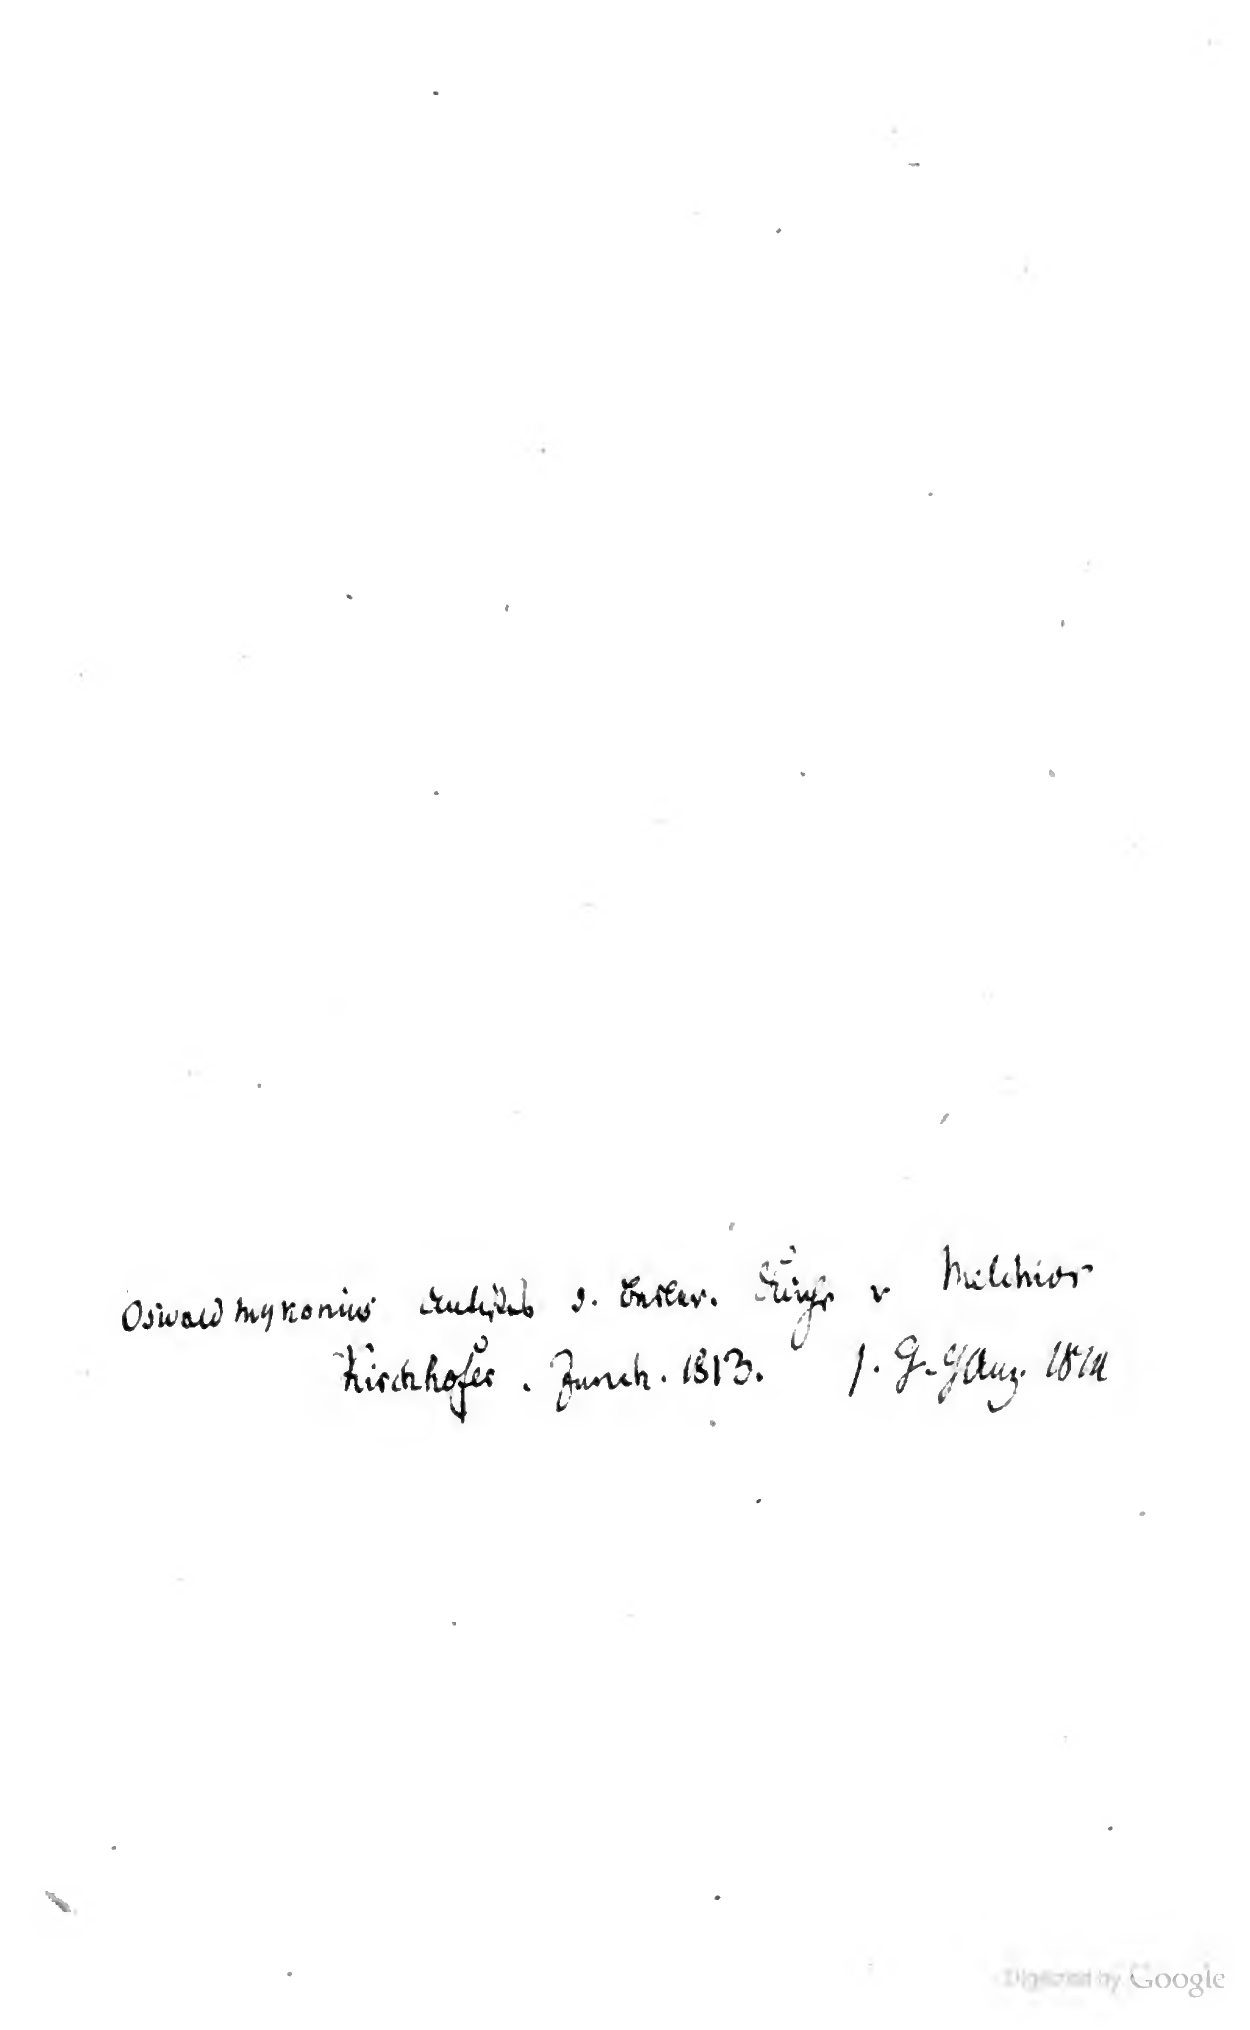 Oswald Mykonius Antistes d. Basler. Kirche v Melchior
Kirchhofer. Zürich. 1813. J. G. Müller 1814
Digitized by Google